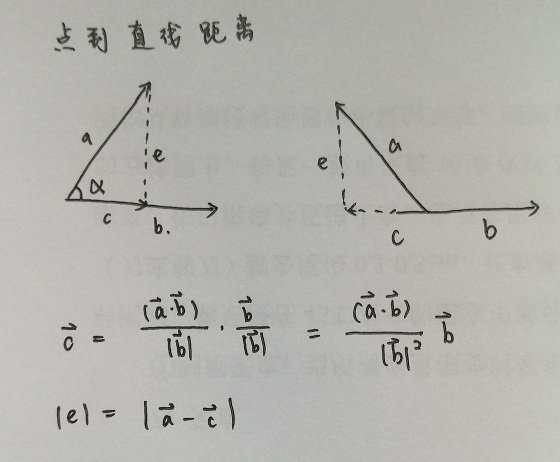 点到直线距离
a e α c b.
a e c b
c⃗ = (a⃗·b⃗)/|b⃗| · b⃗/|b⃗| = (a⃗·b⃗)/|b⃗|² b⃗
|e| = |a⃗ - c⃗|